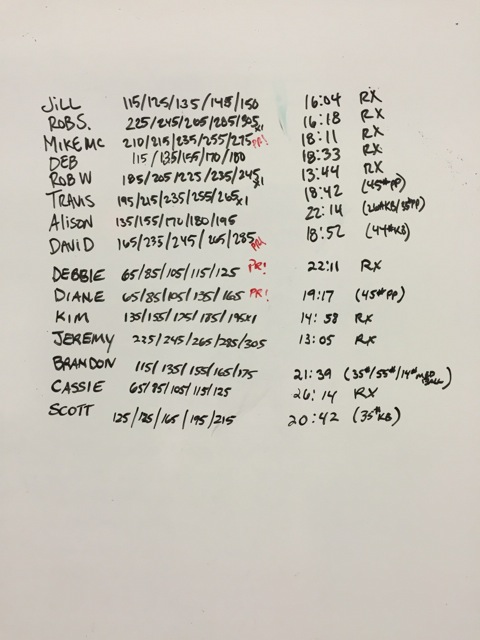 JILL 115/125/135/145/150 16:04 RX
ROB S. 225/245/265/285/305x1 16:18 RX
MIKE MC 210/215/235/255/275 PR! 18:11 RX
DEB 115/135/155/170/180 18:33 RX
ROB W 185/205/225/235/245x1 13:44 RX
TRAVIS 195/215/235/255/265x1 18:42 (45# PP)
ALISON 135/155/170/180/195 22:14 (26#KB/35#PP)
DAVID 165/235/245/265/285 PR! 18:52 (44#KB)
DEBBIE 65/85/105/115/125 PR! 22:11 RX
DIANE 65/85/105/135/165 PR! 19:17 (45# PP)
KIM 135/155/175/185/195x1 14:58 RX
JEREMY 225/245/265/285/305 13:05 RX
BRANDON 115/135/155/165/175 21:39 (35#/55#/14# MED BALL)
CASSIE 65/85/105/115/125 26:14 RX
SCOTT 125/135/165/195/215 20:42 (35#KB)